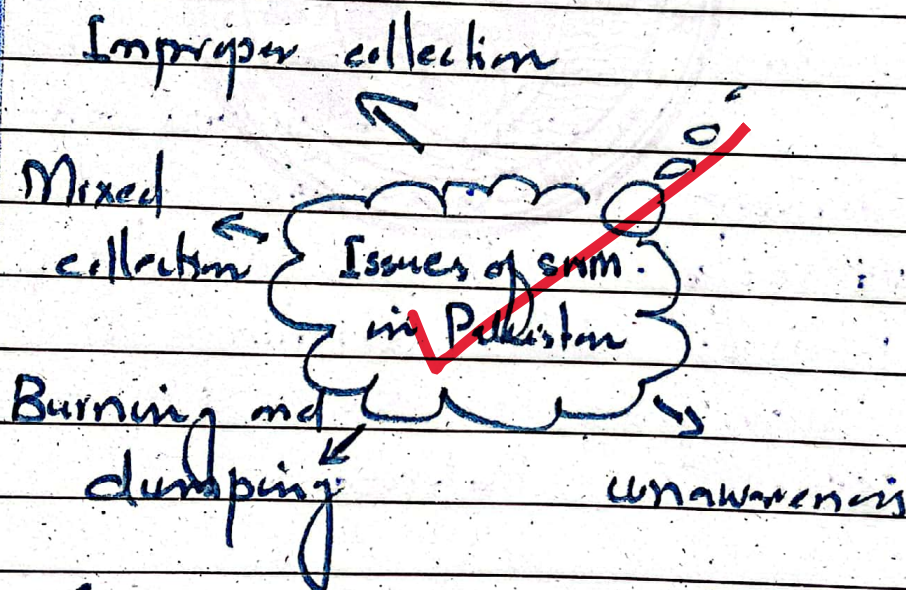 Improper collection
Mixed
collection
Issues of swm
in Pakistan
Burning and
dumping
unawareness